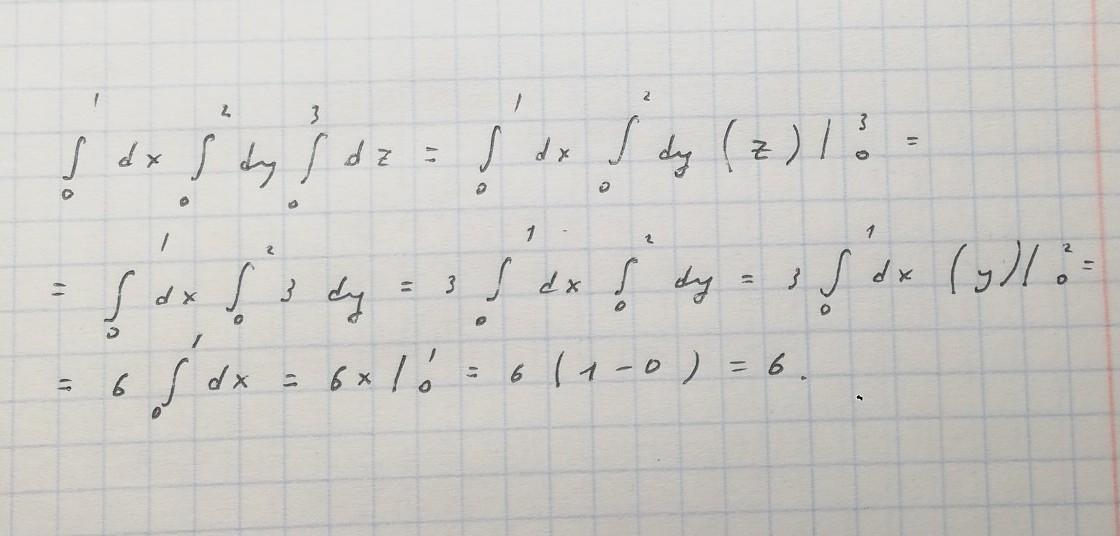 ∫₀¹ dx ∫₀² dy ∫₀³ dz = ∫₀¹ dx ∫₀² dy (z)|₀³ =
= ∫₀¹ dx ∫₀² 3 dy = 3 ∫₀¹ dx ∫₀² dy = 3 ∫₀¹ dx (y)|₀² =
= 6 ∫₀¹ dx = 6x|₀¹ = 6 (1 - 0) = 6.